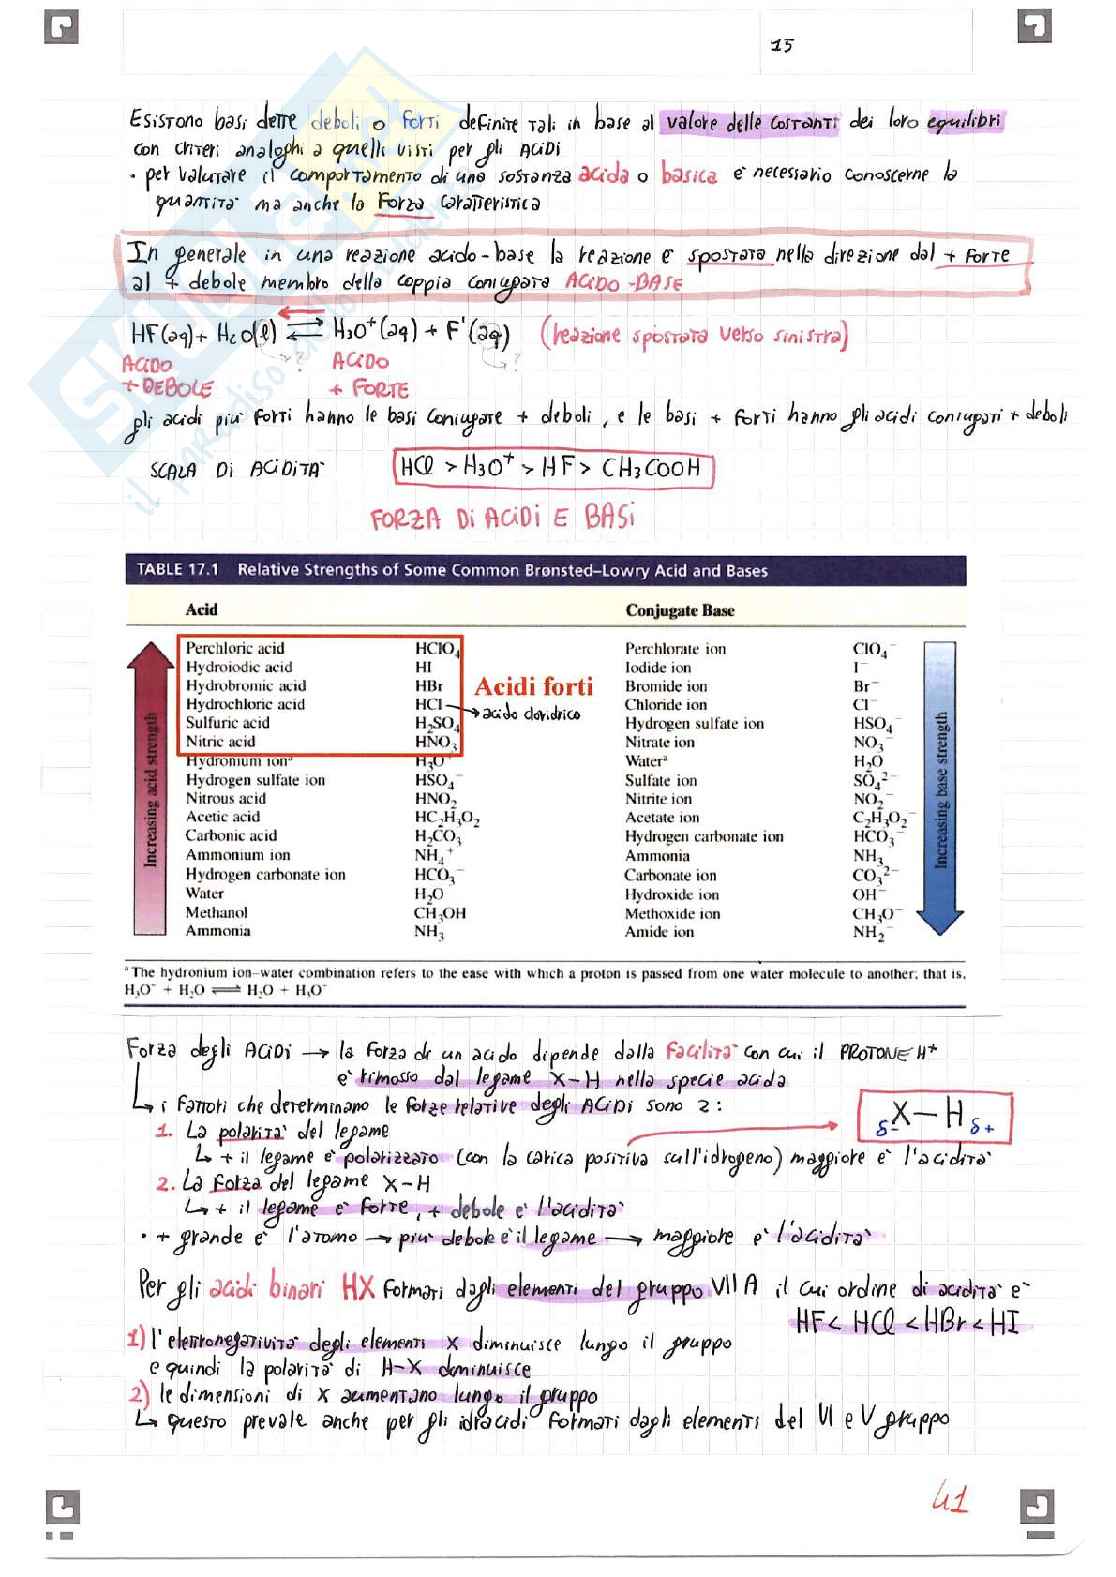 15
Esistono basi dette deboli o forti definite tali in base al valore delle costanti dei loro equilibri
con criteri analoghi a quelli visti per gli ACIDI
· per valutare il comportamento di una sostanza acida o basica è necessario conoscerne la
quantità ma anche la Forza caratteristica
In generale in una reazione acido-base la reazione è spostata nella direzione dal + forte
al + debole membro della coppia coniugata ACIDO-BASE
HF(aq) + H2O(l) ⇌ H3O+(aq) + F-(aq) (reazione spostata verso sinistra)
ACIDO + DEBOLE
ACIDO + FORTE
gli acidi più forti hanno le basi coniugate + deboli, e le basi + forti hanno gli acidi coniugati + deboli
SCALA DI ACIDITÀ HCl > H3O+ > HF > CH3COOH
FORZA DI ACIDI E BASI
TABLE 17.1 Relative Strengths of Some Common Brønsted–Lowry Acid and Bases
Acid Conjugate Base
Perchloric acid HClO4 Perchlorate ion ClO4−
Hydroiodic acid HI Iodide ion I−
Hydrobromic acid HBr Acidi forti Bromide ion Br−
Hydrochloric acid HCl → acido cloridrico Chloride ion Cl−
Sulfuric acid H2SO4 Hydrogen sulfate ion HSO4−
Nitric acid HNO3 Nitrate ion NO3−
Hydronium ionª H3O+ Waterª H2O
Hydrogen sulfate ion HSO4− Sulfate ion SO4 2−
Nitrous acid HNO2 Nitrite ion NO2−
Acetic acid HC2H3O2 Acetate ion C2H3O2−
Carbonic acid H2CO3 Hydrogen carbonate ion HCO3−
Ammonium ion NH4+ Ammonia NH3
Hydrogen carbonate ion HCO3− Carbonate ion CO3 2−
Water H2O Hydroxide ion OH−
Methanol CH3OH Methoxide ion CH3O−
Ammonia NH3 Amide ion NH2−
Increasing acid strength
Increasing base strength
ªThe hydronium ion–water combination refers to the ease with which a proton is passed from one water molecule to another; that is,
H3O+ + H2O ⇌ H2O + H3O+
Forza degli ACIDI → la forza di un acido dipende dalla facilità con cui il PROTONE H+
è rimosso dal legame X-H nella specie acida
↳ i fattori che determinano le forze relative degli ACIDI sono 2:
1. La polarità del legame
δ- X-H δ+
↳ + il legame è polarizzato (con la carica positiva sull'idrogeno) maggiore è l'acidità
2. La Forza del legame X-H
↳ + il legame è forte, + debole è l'acidità
· + grande è l'atomo → più debole è il legame → maggiore è l'acidità
Per gli acidi binari HX formati dagli elementi del gruppo VII A il cui ordine di acidità è
HF < HCl < HBr < HI
1) l'elettronegatività degli elementi X diminuisce lungo il gruppo
e quindi la polarità di H-X diminuisce
2) le dimensioni di X aumentano lungo il gruppo
↳ questo prevale anche per gli idracidi formati dagli elementi del VI e V gruppo
41